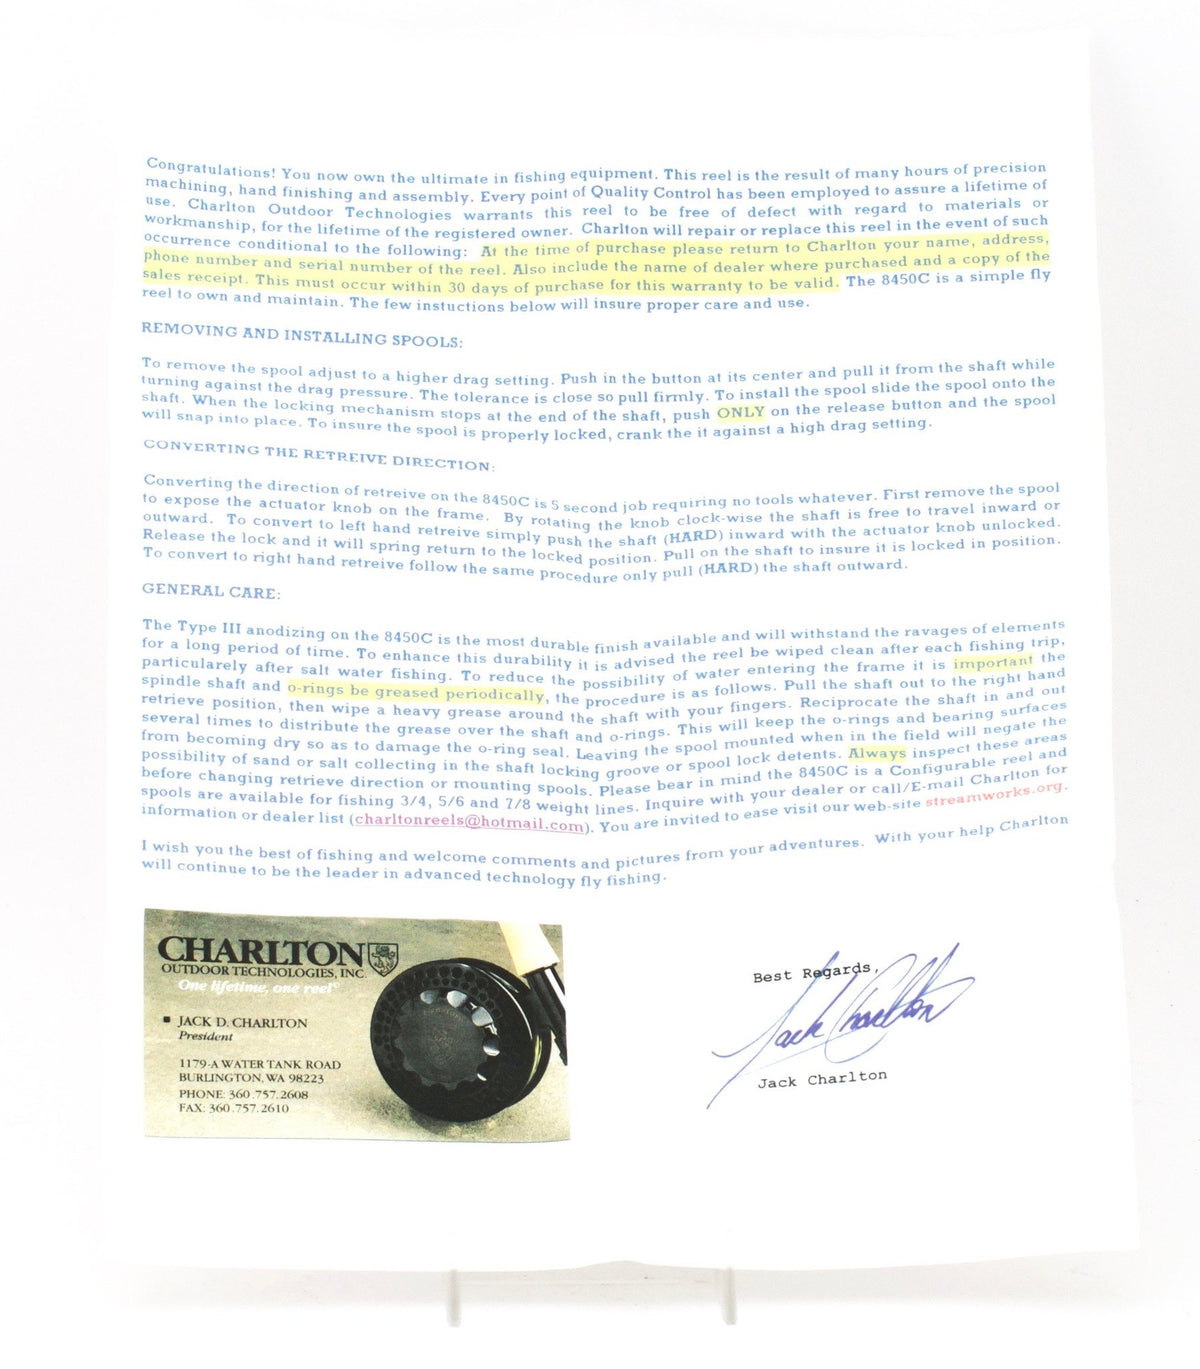 Congratulations! You now own the ultimate in fishing equipment. This reel is the result of many hours of precision
machining, hand finishing and assembly. Every point of Quality Control has been employed to assure a lifetime of
use. Charlton Outdoor Technologies warrants this reel to be free of defect with regard to materials or
workmanship, for the lifetime of the registered owner. Charlton will repair or replace this reel in the event of such
occurrence conditional to the following: At the time of purchase please return to Charlton your name, address,
phone number and serial number of the reel. Also include the name of dealer where purchased and a copy of the
sales receipt. This must occur within 30 days of purchase for this warranty to be valid. The 8450C is a simple fly
reel to own and maintain. The few instuctions below will insure proper care and use.
REMOVING AND INSTALLING SPOOLS:
To remove the spool adjust to a higher drag setting. Push in the button at its center and pull it from the shaft while
turning against the drag pressure. The tolerance is close so pull firmly. To install the spool slide the spool onto the
shaft. When the locking mechanism stops at the end of the shaft, push ONLY on the release button and the spool
will snap into place. To insure the spool is properly locked, crank the it against a high drag setting.
CONVERTING THE RETREIVE DIRECTION:
Converting the direction of retreive on the 8450C is 5 second job requiring no tools whatever. First remove the spool
to expose the actuator knob on the frame. By rotating the knob clock-wise the shaft is free to travel inward or
outward. To convert to left hand retreive simply push the shaft (HARD) inward with the actuator knob unlocked.
Release the lock and it will spring return to the locked position. Pull on the shaft to insure it is locked in position.
To convert to right hand retreive follow the same procedure only pull (HARD) the shaft outward.
GENERAL CARE:
The Type III anodizing on the 8450C is the most durable finish available and will withstand the ravages of elements
for a long period of time. To enhance this durability it is advised the reel be wiped clean after each fishing trip,
particularely after salt water fishing. To reduce the possibility of water entering the frame it is important the
spindle shaft and o-rings be greased periodically, the procedure is as follows. Pull the shaft out to the right hand
retrieve position, then wipe a heavy grease around the shaft with your fingers. Reciprocate the shaft in and out
several times to distribute the grease over the shaft and o-rings. This will keep the o-rings and bearing surfaces
from becoming dry so as to damage the o-ring seal. Leaving the spool mounted when in the field will negate the
possibility of sand or salt collecting in the shaft locking groove or spool lock detents. Always inspect these areas
before changing retrieve direction or mounting spools. Please bear in mind the 8450C is a Configurable reel and
spools are available for fishing 3/4, 5/6 and 7/8 weight lines. Inquire with your dealer or call/E-mail Charlton for
information or dealer list (charltonreels@hotmail.com). You are invited to ease visit our web-site streamworks.org.
I wish you the best of fishing and welcome comments and pictures from your adventures. With your help Charlton
will continue to be the leader in advanced technology fly fishing.
CHARLTON
OUTDOOR TECHNOLOGIES, INC.
One lifetime, one reel©
JACK D. CHARLTON
President
1179-A WATER TANK ROAD
BURLINGTON, WA 98223
PHONE: 360.757.2608
FAX: 360.757.2610
Best Regards,
Jack Charlton
Jack Charlton